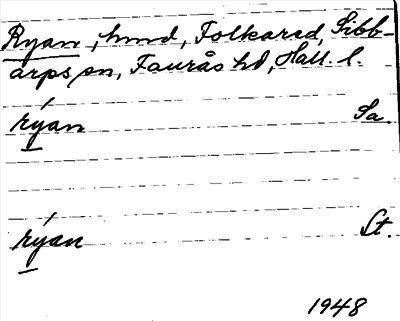 Ryan, hmd, Folkared, Sibb-
arps sn, Faurås hd, Hall. l.
rýan Sa.
rýan St.
1948